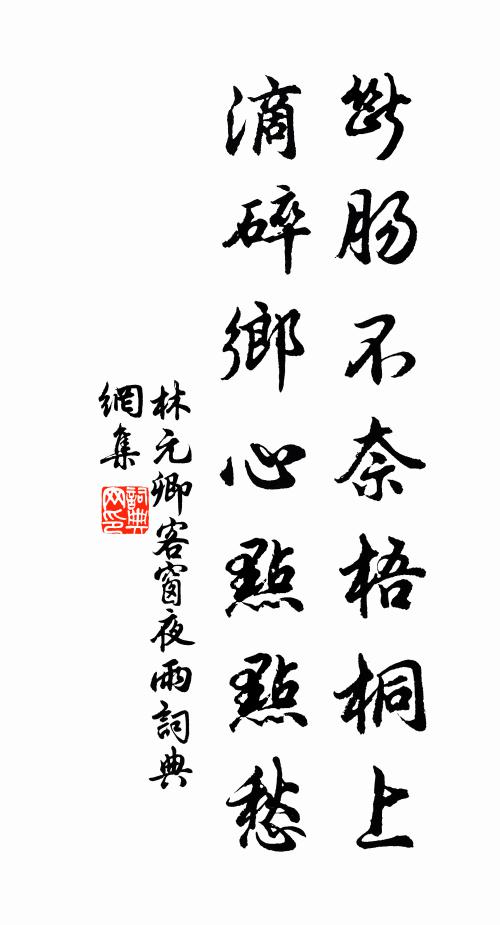 斷腸不奈梧桐上
滴碎鄉心點點愁
林元卿客窗夜雨詞典
網集
詞典
网印